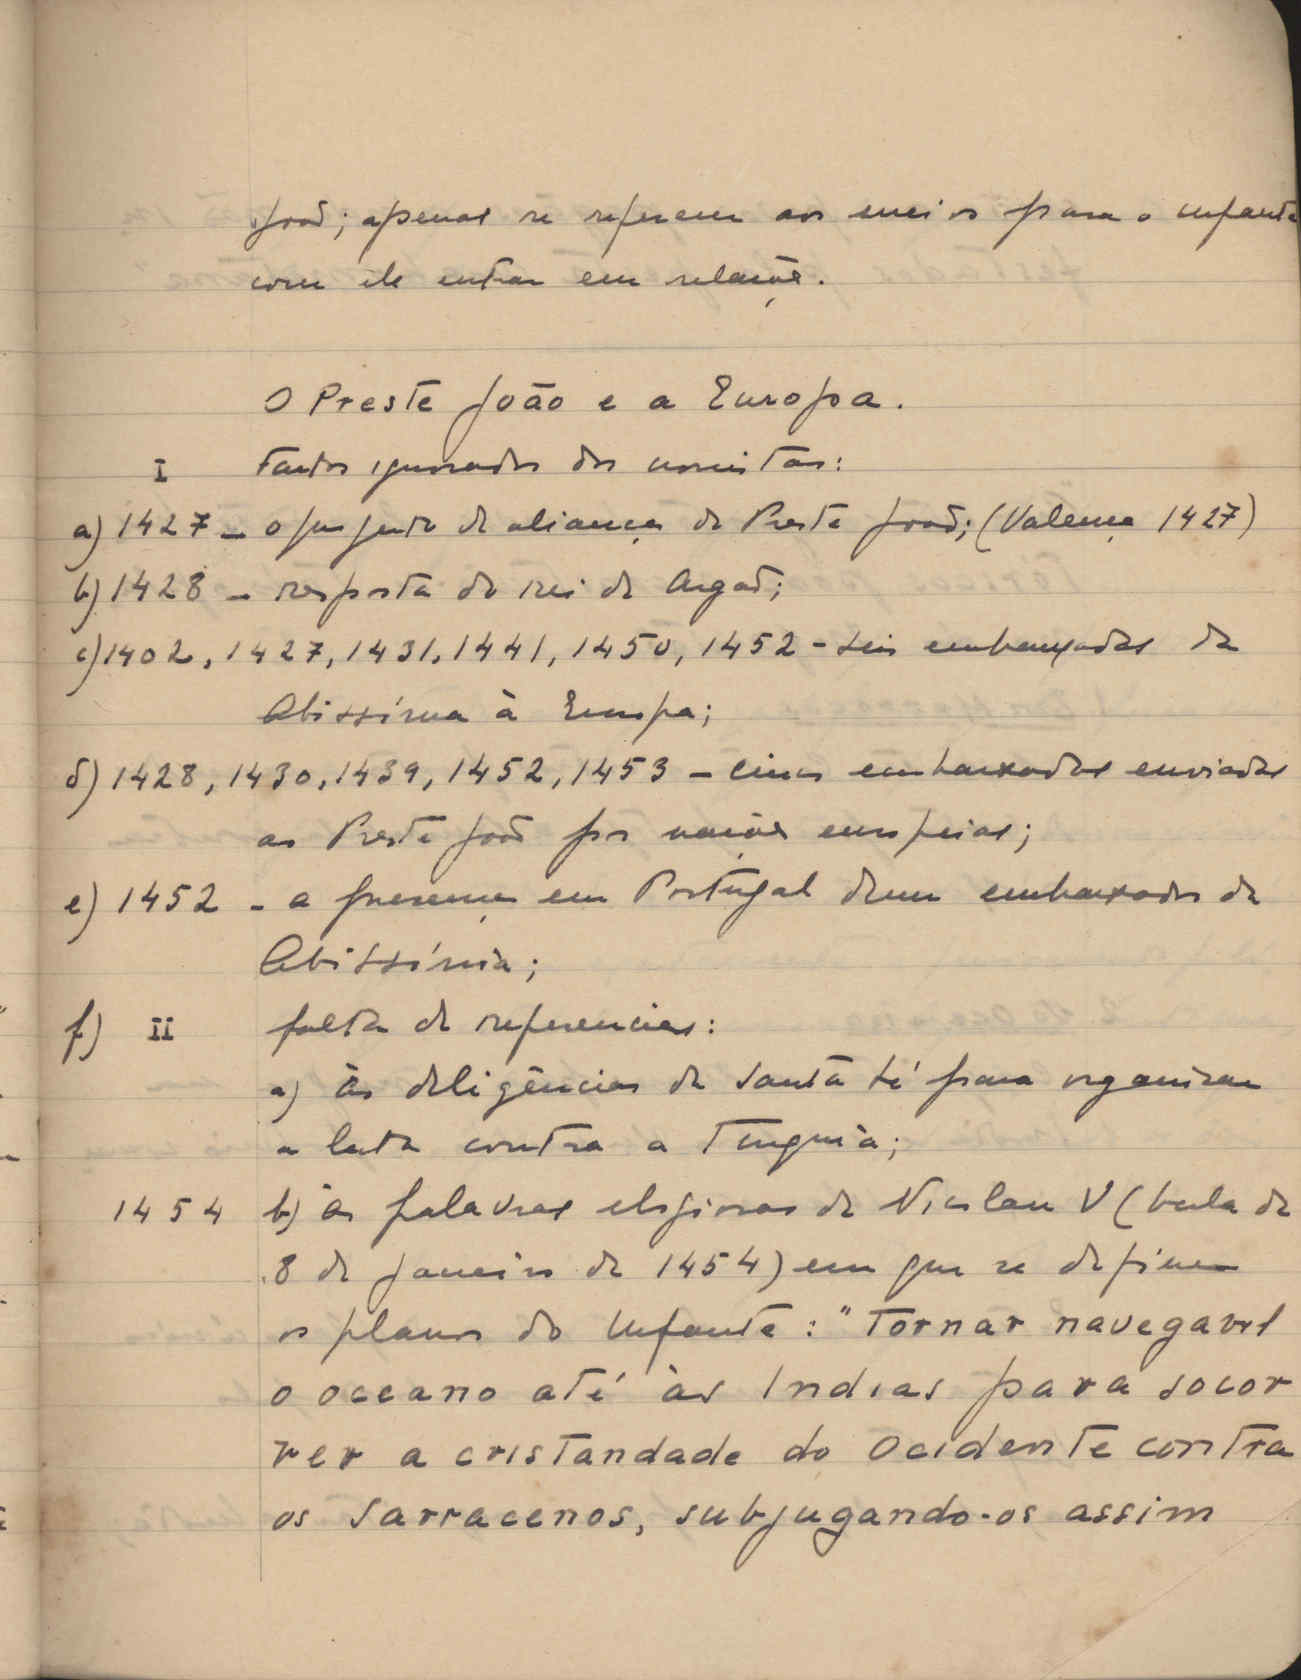 João; apenas se referem aos meios para o infante
com ele entrar em relações.
O Preste João e a Europa.
I Factos ignorados dos cronistas:
a) 1427 - o projecto de aliança do Preste João; (Valença 1427)
b) 1428 - resposta do rei de Aragão;
c) 1402, 1427, 1431, 1441, 1450, 1452 - seis embaixadas da
Abissínia à Europa;
d) 1428, 1430, 1439, 1452, 1453 - cinco embaixadas enviadas
ao Preste João por nações europeias;
e) 1452 - a presença em Portugal dum embaixador da
Abissínia;
f) II falta de referencias:
a) às deligências da Santa Sé para organizar
a luta contra a Turquia;
1454 b) às palavras elogiosas de Nicolau V (bula de
8 de Janeiro de 1454) em que se definem
os planos do Infante: "Tornar navegavel
o oceano até às Indias para socor
rer a cristandade do Ocidente contra
os Sarracenos, subjugando-os assim